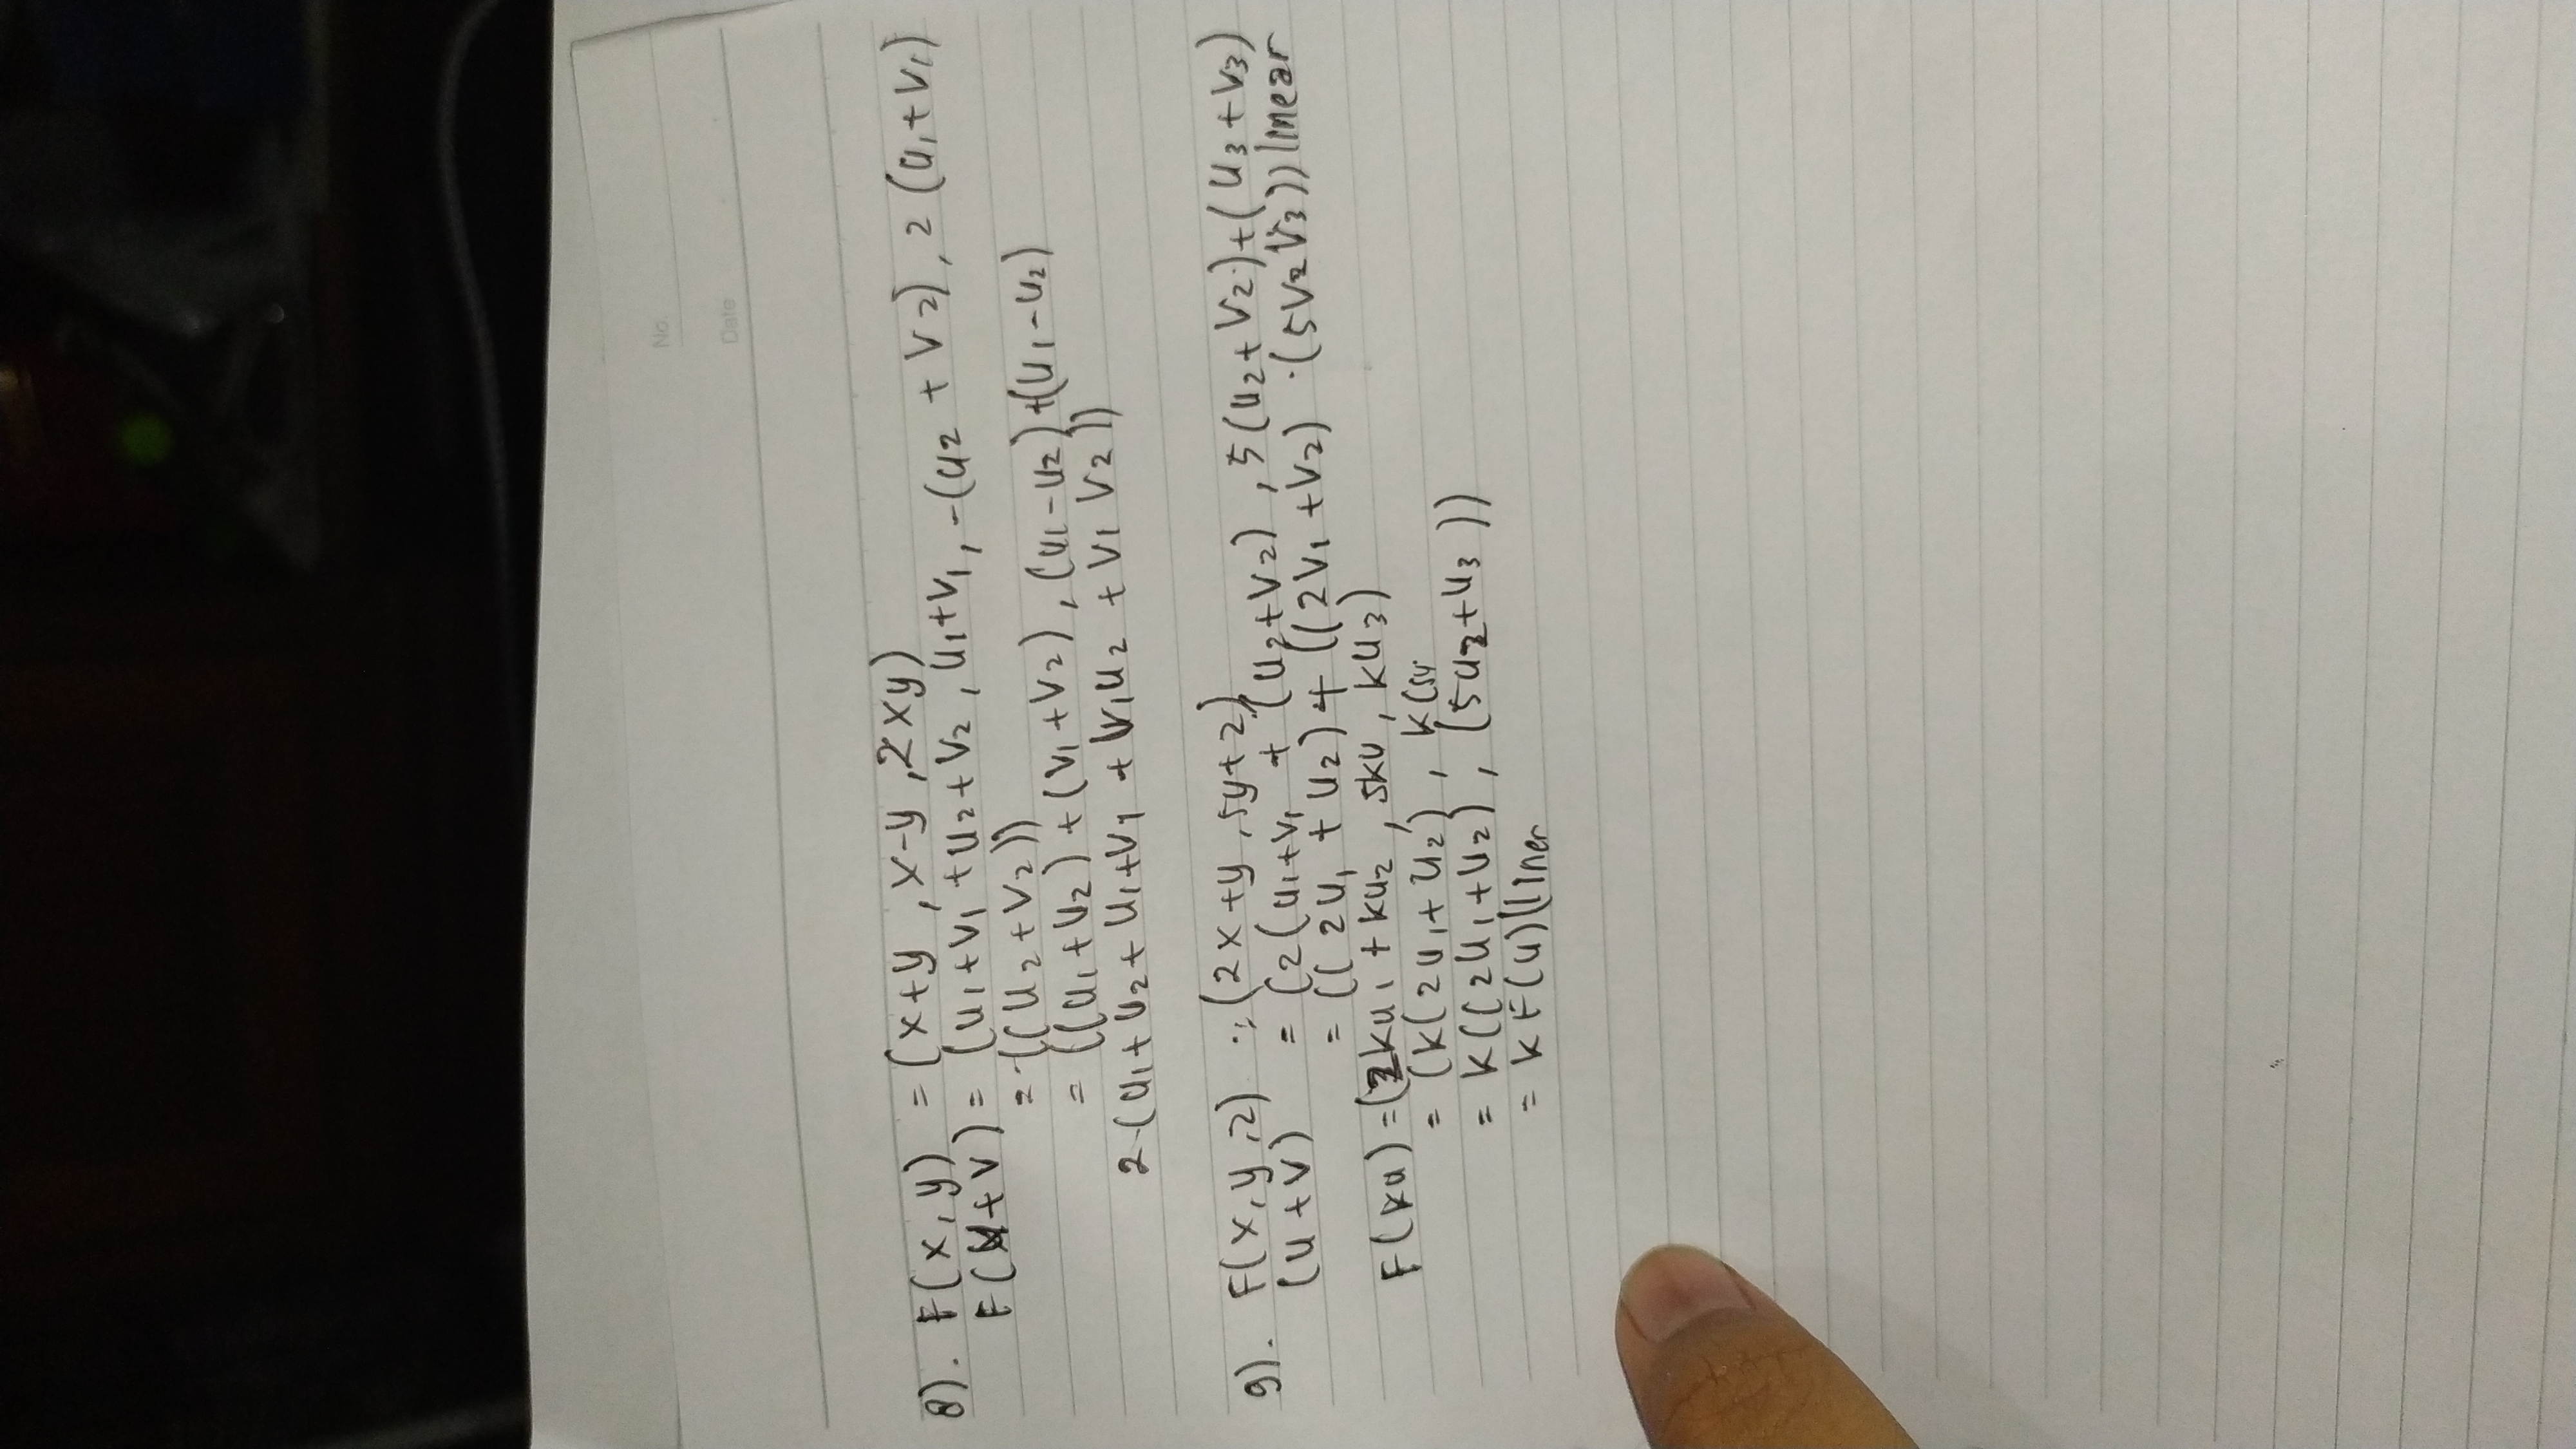 No.
Date
8). F(x, y) = (x+y , x-y , 2xy)
F(u+v) = (u₁+v₁ +u₂+v₂ , u₁+v₁, -(u₂ + v₂), 2 (u₁+v₁)
= ((u₂+v₂))
= ((u₁+u₂) + (v₁+v₂), (u₁-u₂)+(u₁-u₂)
2 (u₁+u₂+u₁+v₁ + v₁u₂ + v₁ v₂))
9). F(x,y,2) = (2x+y , 5y+2)
(u+v) = (2(u₁+v₁ + (u₂+v₂) , 5(u₂+v₂)+(u₃+v₃)
= (( 2u₁ + u₂) + ((2v₁ +v₂) · (5v₂ v₃)) linear
F(ku) = (2ku₁ + ku₂ , 5ku , ku₃)
= (k(2u₁+u₂) , k(5u
= k((2u₁+u₂) , (5u₂+u₃ ))
= k F(u) liner